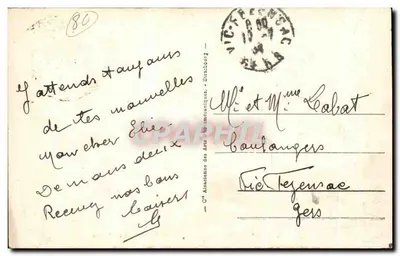 80
VIC-FEZENSAC
J'attends toujours
de tes nouvelles
Mon cher Elie
De nous deux
Recevez nos bons
baisers
Cie Alsacienne des Arts Photomécaniques - Strasbourg
Mr et Mme Labat
boulangers
Vic Fezensac
Gers